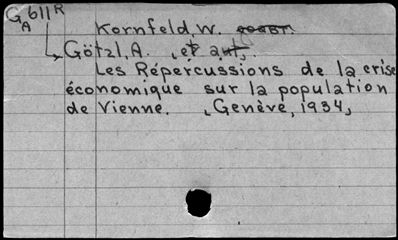 G 611 R
A
Kornfeld, W.
Götzl, A. , et aut.,
Les Répercussions de la crise
économique sur la population
de Vienne. , Genève, 1934,